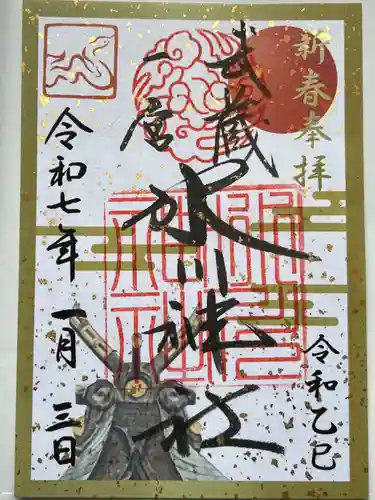 新春奉拝
令和乙巳
武蔵
一宮
氷川神社
令和七年 一月三日